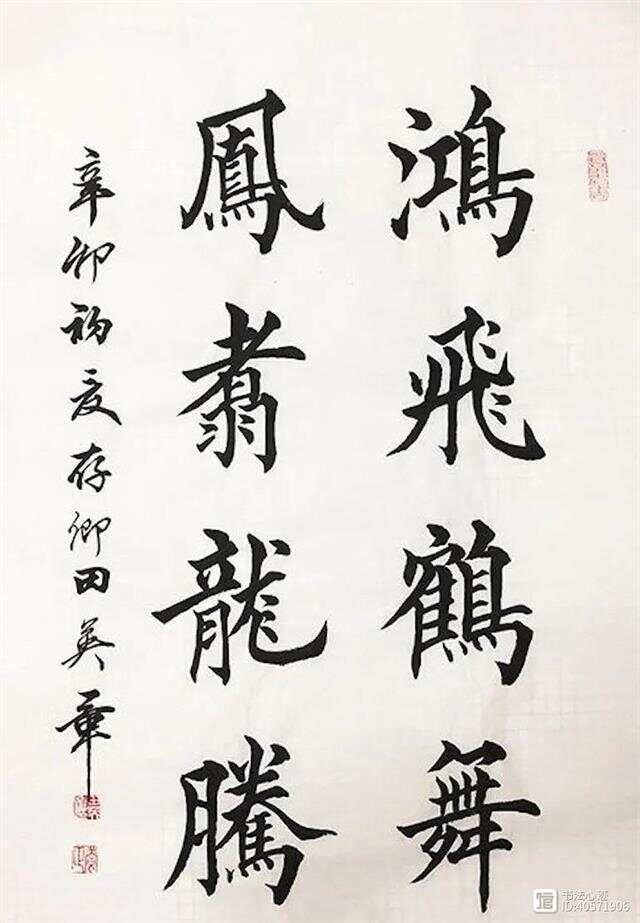 鴻飛鶴舞
鳳翥龍騰
辛卯初夏存卿田英章
书法心迹
ID:40571906